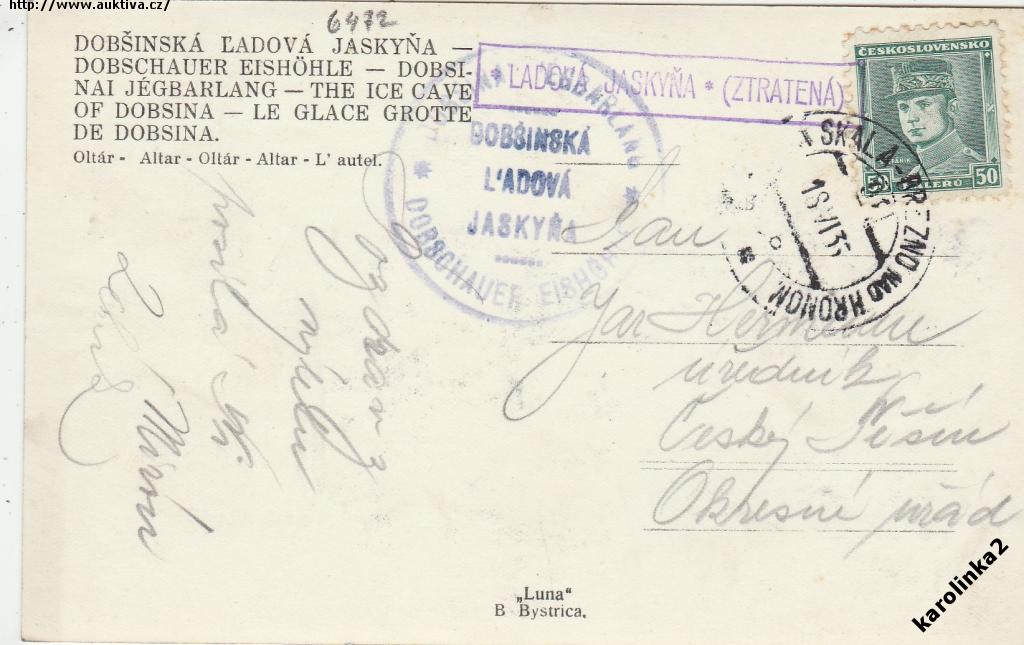 http://www.auktiva.cz/
6472
DOBŠINSKÁ ĽADOVÁ JASKYŇA —
DOBSCHAUER EISHÖHLE — DOBSI-
NAI JÉGBARLANG — THE ICE CAVE
OF DOBSINA — LE GLACE GROTTE
DE DOBSINA.
Oltár - Altar - Oltár - Altar - L' autel.
* ĽADOVÁ JASKYŇA * (ZTRATENÁ)
DOBŠINSKÁ
L'ADOVÁ
JASKYŇA
* DOBSCHAUER EISHÖH
ČESKOSLOVENSKO
50 50
SKALA-BREZNO NAD HRONOM
18.VI.35
Pan
Jar. Heřman
úředník
Český Těšín
Okresný úřad
pozdrav z
výletu
posílá
„Luna"
B Bystrica.
karolinka2